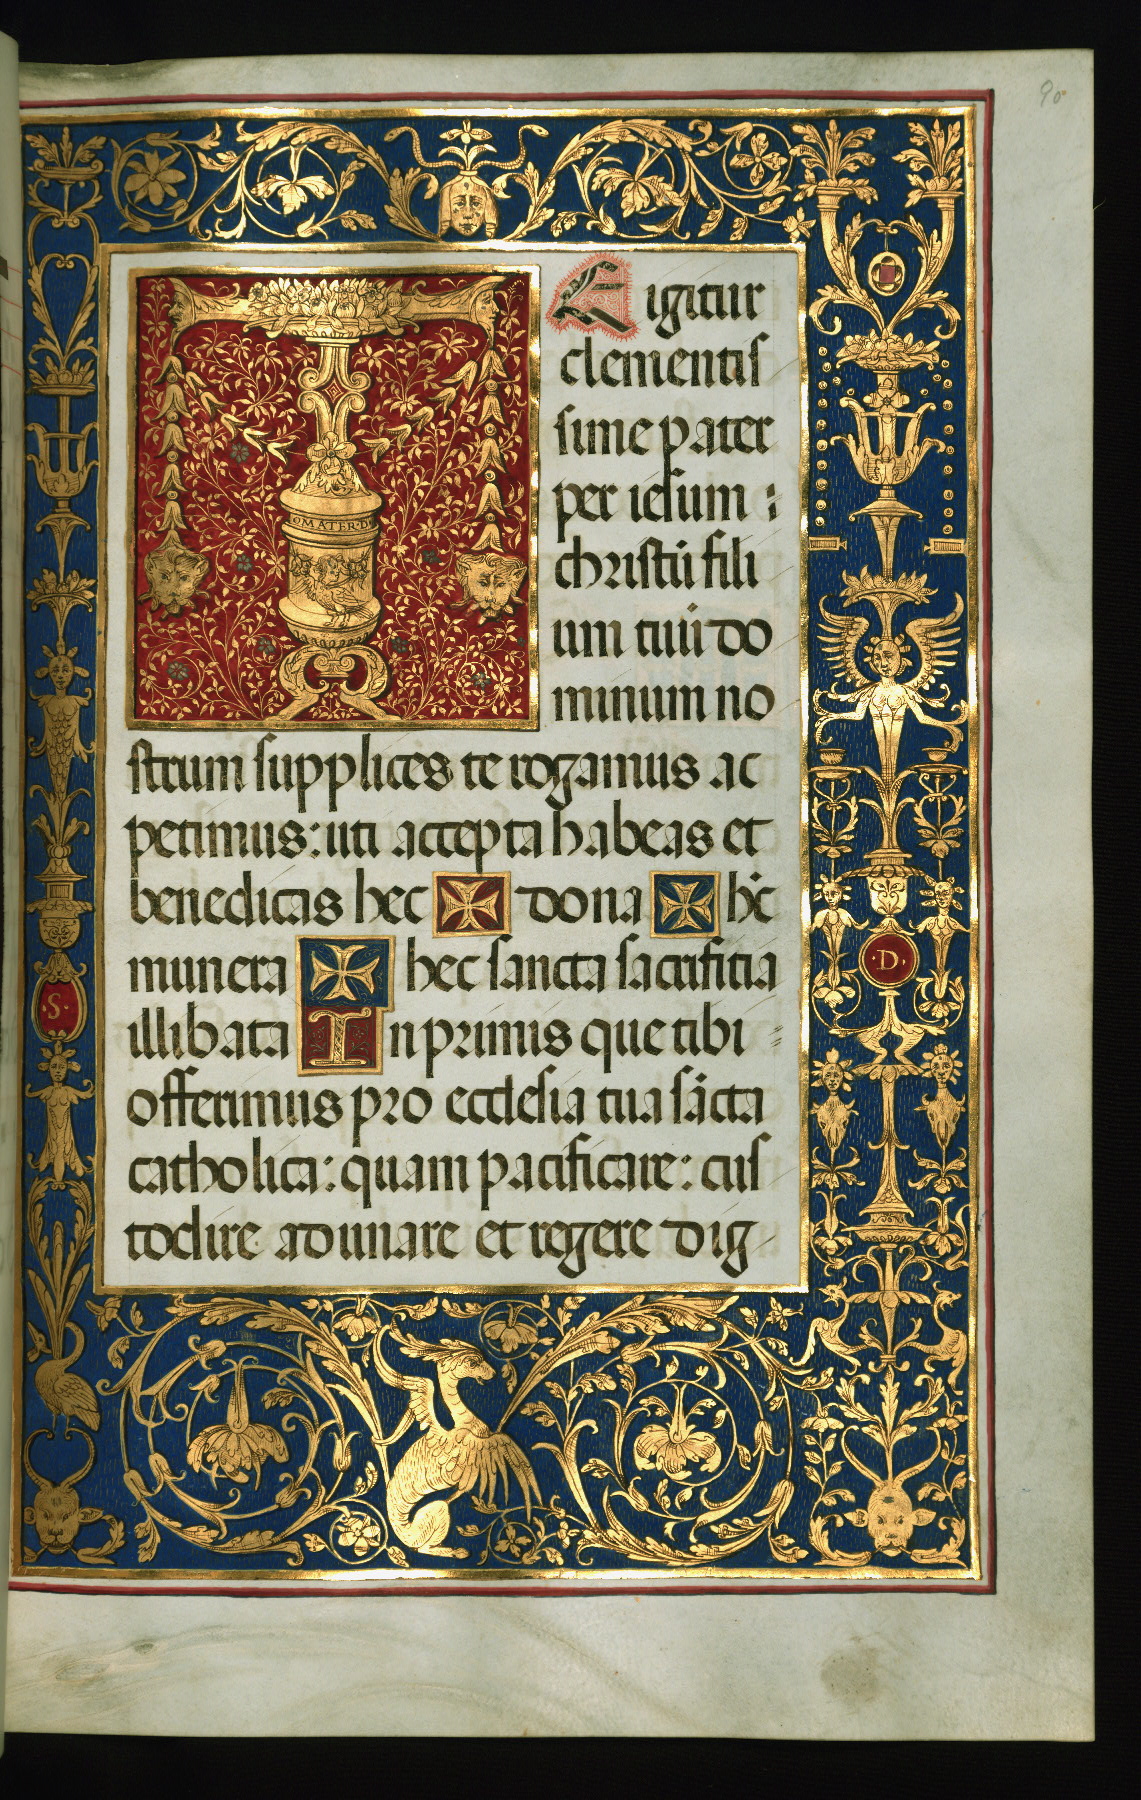 90
E igitur
clementiſ
sime pater
per ieſum :
chriſtū fili
um tuū do
minum no
OMATER·D
ſtrum ſupplices te rogamus ac
petimus: uti accepta habeas et
benedicas hec ✠ dona ✠ hc̄
munera ✠ hec ſancta ſacrifitia
·S·
·D·
illibata In primis que tibi
offerimus pro eccleſia tua ſācta
catholica: quam pacificare: cuſ
todire adunare et regere dig